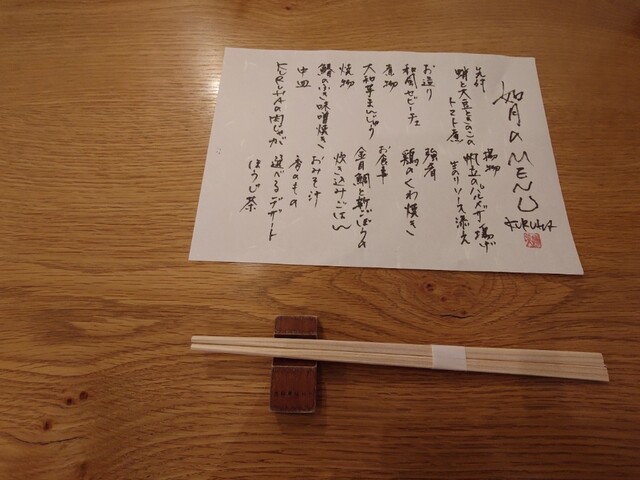 如月のMENU
KURUHA
先付
蛸と大豆ときのこの
トマト煮
お造り
和風セビーチェ
煮物
大和芋まんじゅう
焼物
鰆のふき味噌焼き
中皿
KURUHAの肉じゃが
揚物
帆立のパルメザン揚げ
生のりソース添え
強肴
鶏のくわ焼き
お食事
金目鯛と新ごぼうの
炊き込みごはん
おみそ汁
香のもの
選べるデザート
ほうじ茶